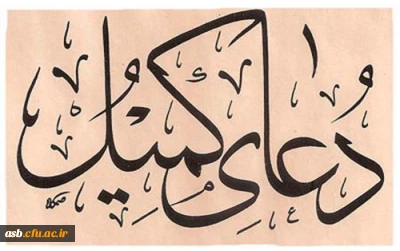 دُعای کمیل
asb.cfu.ac.ir